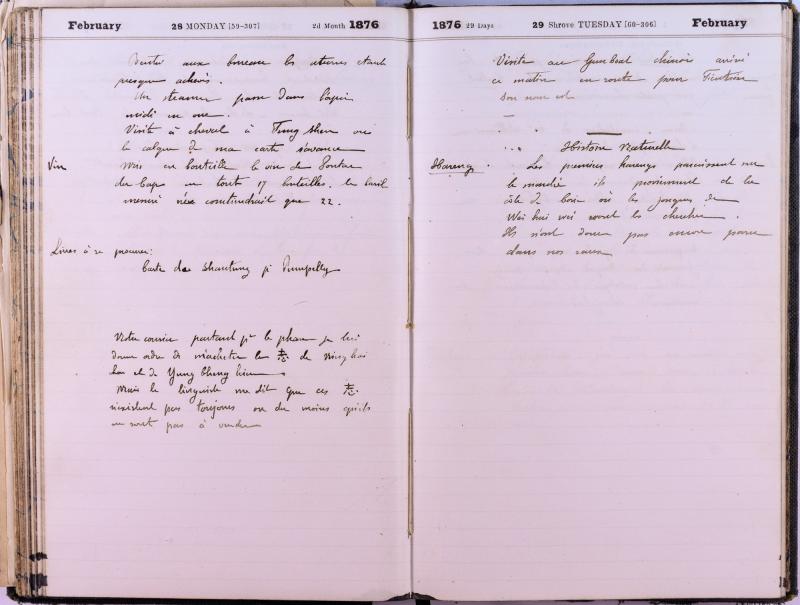 February 28 MONDAY [59-307] 2d Month 1876
Visite aux bureaux les
presque achevés.
Un steamer passe dans
midi en une.
Visite à cheval à Tung Shen où
le calque de ma carte s'avance
Vin Mis en bouteille le vin de
du Cap en tout 17 bouteilles. Le baril
mesuré ne contiendrait que 22.
Livres à se procurer:
Carte de Shantung pr
Notre courrier partant pr le phare je lui
donne ordre de m'acheter le 志 de Ning hai
et de Yung Cheng hien
Mais le linguiste me dit que ces 志
n'existent pas toujours ou du moins qu'ils
ne sont pas à vendre
1876 29 Days 29 Shrove TUESDAY [60-306] February
Visite au Gun boat chinois arrivé
ce matin en route pour Tientsin
Son nom est
Histoire Naturelle
Harengs Les premiers harengs paraissent sur
le marché ils proviennent de la
côte de où les jonques de
Wei hai wei vont les chercher.
Ils n'ont donc pas encore paru
dans nos eaux